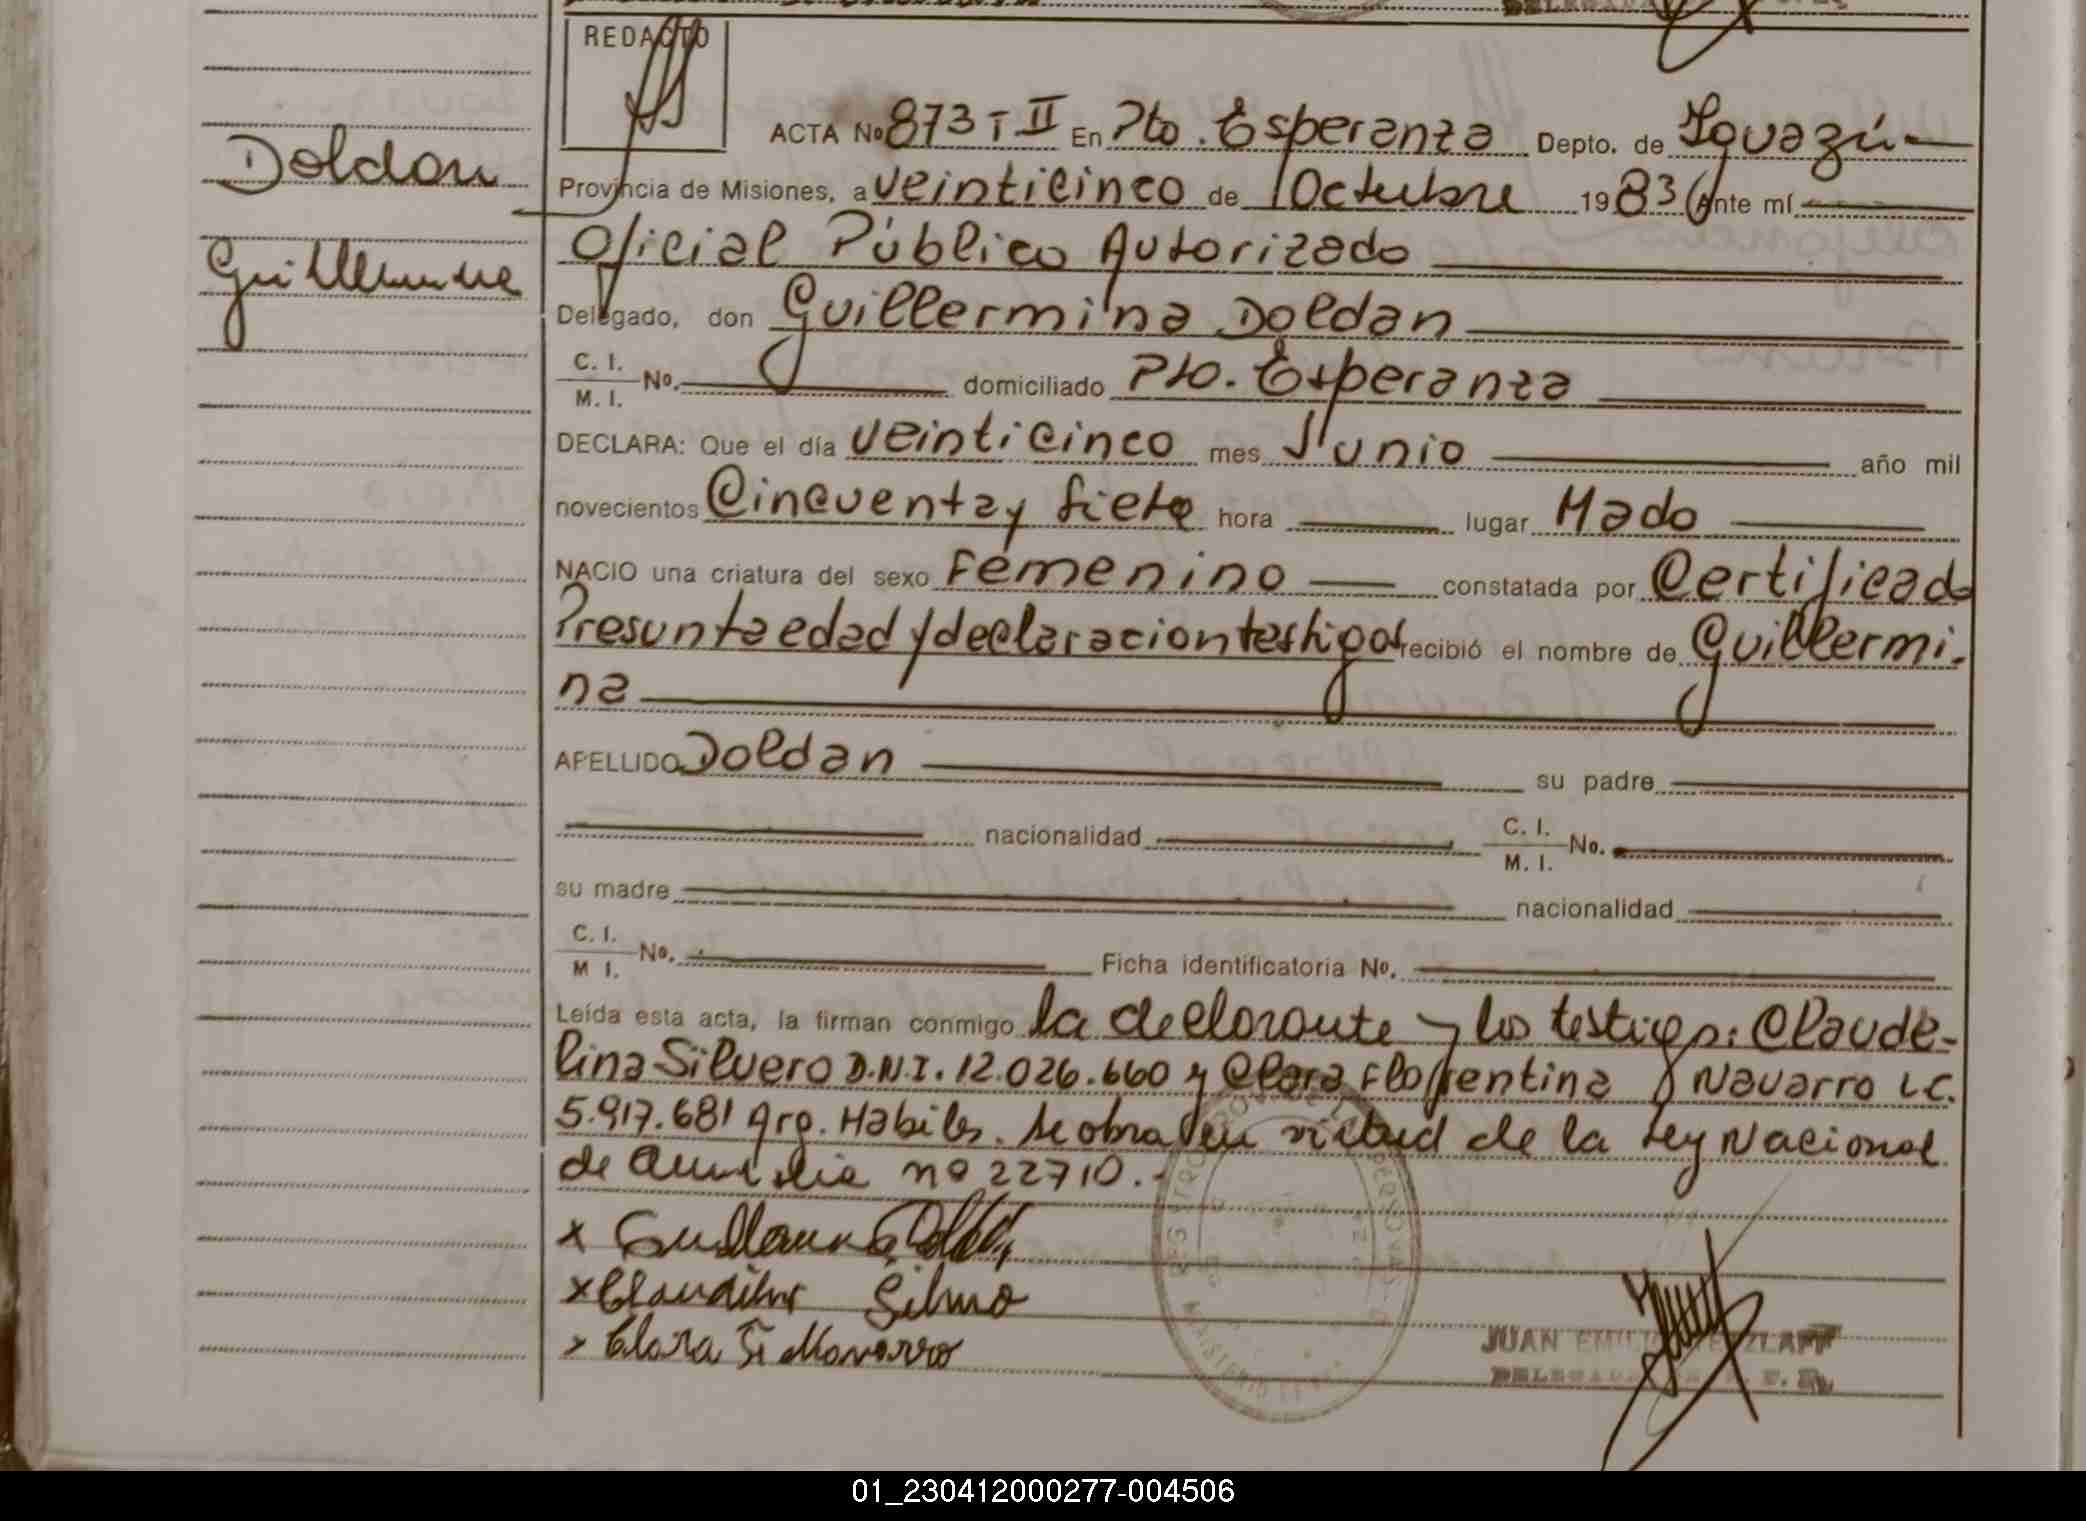 REDACTO
ACTA No 873 T II En Pto. Esperanza Depto. de Iguazú
Doldan
Guillermina
Provincia de Misiones, a veinticinco de Octubre 1983 Ante mí
Oficial Público Autorizado
Delegado, don Guillermina Doldan
C. I.
M. I. No. domiciliado Pto. Esperanza
DECLARA: Que el día veinticinco mes Junio año mil
novecientos Cincuenta y siete hora lugar Mado
NACIO una criatura del sexo Femenino constatada por Certificado
Presunta edad y declaracion testigos recibió el nombre de Guillermi-
na
APELLIDO Doldan su padre
nacionalidad C. I. M. I. No.
su madre nacionalidad
C. I.
M I. No. Ficha identificatoria No.
Leída esta acta, la firman conmigo la declarante y los testigos: Claude-
lina Silvero D.N.I. 12.026.660 y Clara Florentina Navarro L.C.
5.917.681 Arg. Habiles. Se obra en virtud de la Ley Nacional
de Amnistia nº 22710.-
x Guillermina Doldan
x Claudelina Silvero
x Clara F. Navarro
JUAN EMILIO
DELEGADO
01_230412000277-004506